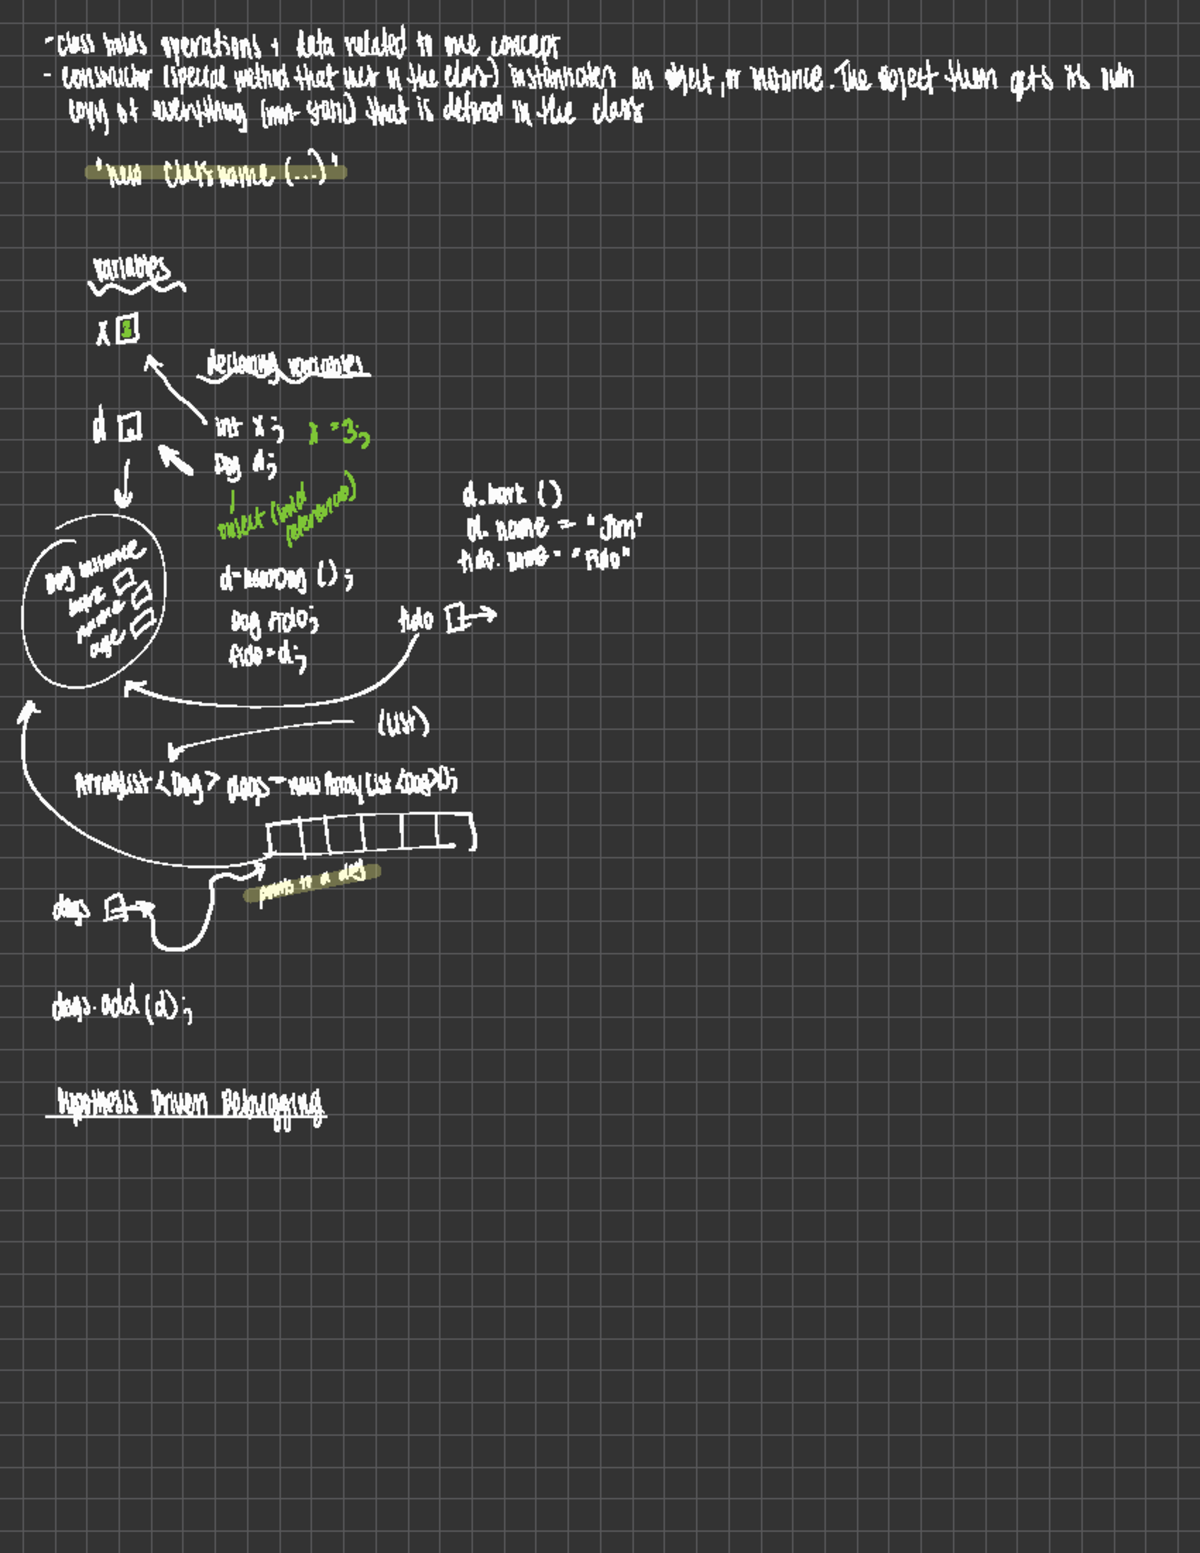 - class holds operations + data related to one concept
- constructor (special method that lives in the class) instantiates an object, or instance. The object then gets its own
copy of everything (non-static) that is defined in the class
"new Classname (...)"
variables
x 3
declaring variables
d
int x; x = 3;
Dog d;
object (hold references)
d.bark ()
d. name = "Jim"
fido. name = "Fido"
Dog instance
name
age
d = new Dog ();
Dog fido;
fido = d;
fido
(List)
ArrayList <Dog> dogs = new ArrayList <Dog>();
points to a dog
dogs
dogs.add (d);
Hypothesis Driven Debugging